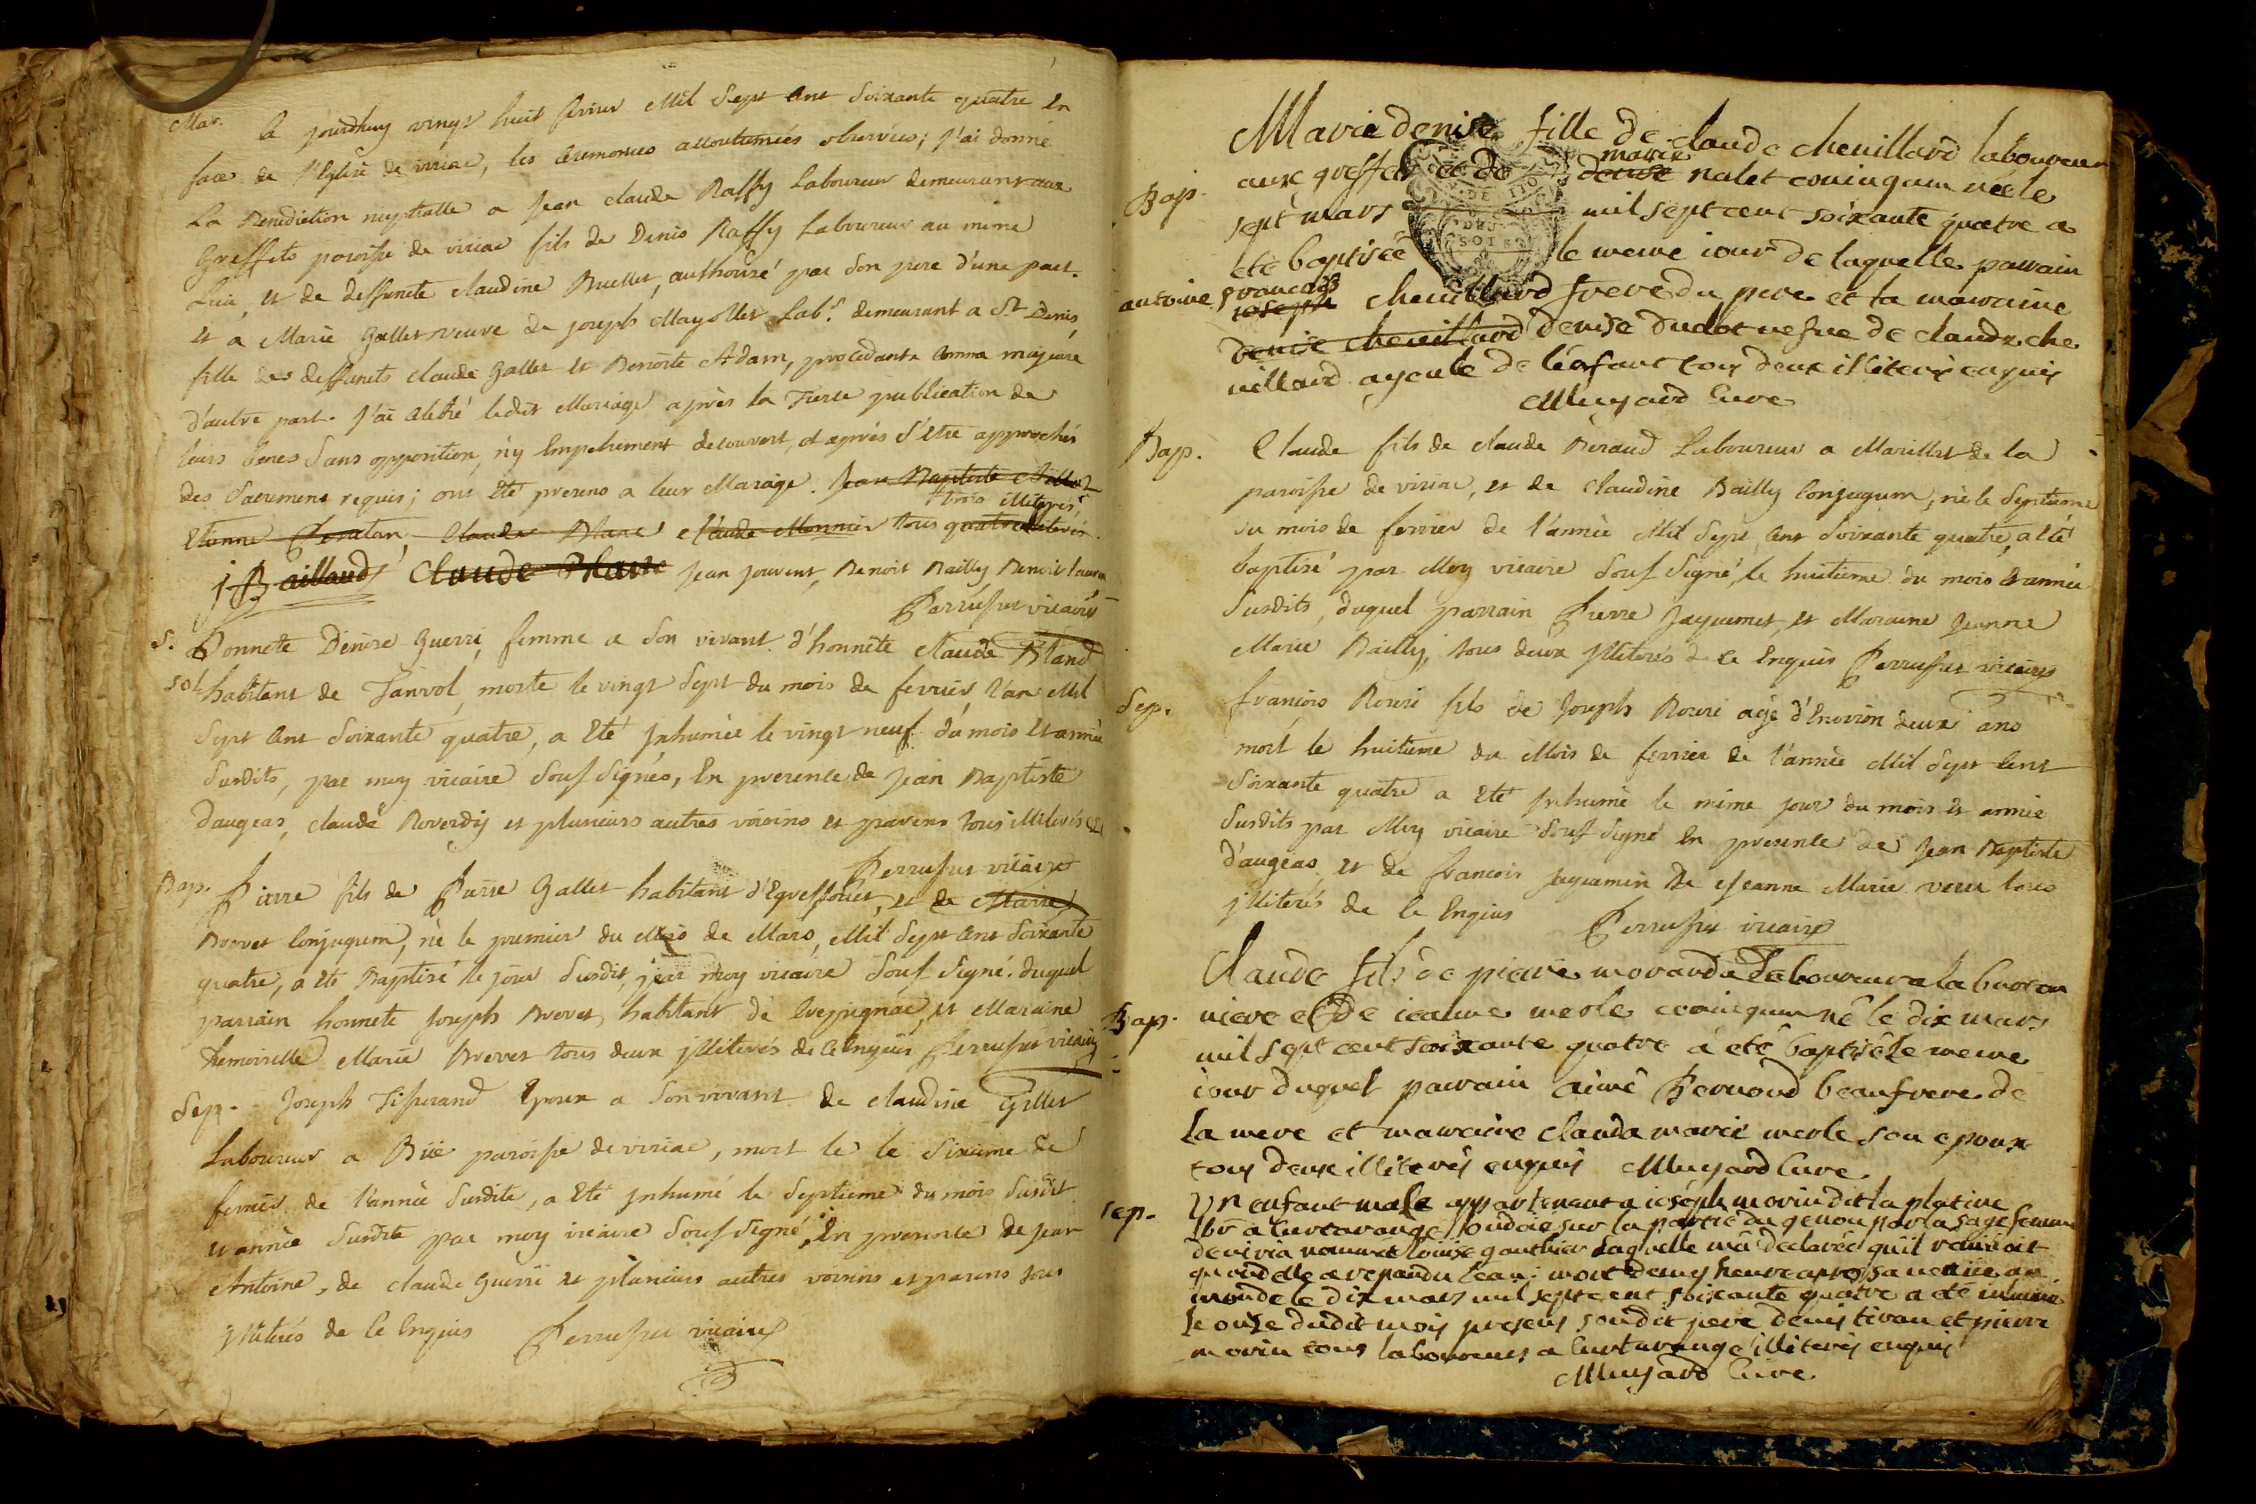 Mar. Ce jourdhuy vingt huit fevrier Mil Sept Cent Soixante quatre En
face de l'Eglise de viriac, les Ceremonies accoutumées observées; j'ai donné
La Benediction nuptialle a Jean claude Raffy Laboureur demeurant aux
Greffets paroisse de viriac fils de Denis Raffy Laboureur au même
Lieu, et de deffuncte claudine Buellet, authorisé par Son pere d'une part.
et a Marie Gallet veuve de joseph Mayollet Lab.r demeurant a St Denis,
fille des deffuncts claude Gallet et Benoite Adam, procedante comme majeure
d'autre part. J'ai célébré ledit Mariage après la Tierce publication de
leurs bancs Sans opposition, n'y Empechement decouvert, et après S'être approchés
des Sacremens requis; ont Eté presens a leur Mariage. Jean Baptiste
trois illiterés,
Claude Blanc claude Monnier tous quatre illiterés
j Baillaud Claude Blanc Jean jouvent, Benoit Bailly Benoit
Perruset vicaire
S. Honnete Denise Guerri, femme a Son vivant d'honnête claude Bland
sol habitant de Tanvol, morte le vingt Sept du mois de fevrier, l'an Mil
Sept Cent Soixante quatre, a Eté Inhumée le vingt neuf du mois et année
Susdits, par moy vicaire Soussignés, En presence de Jean Baptiste
Daugeas, claude Roverdy et plusieurs autres voisins et parens tous illiterés
Perruset vicaire
Bap. Pierre fils de Pierre Gallet habitant et de Marie
Brovet Conjugum, né le premier du Mois de Mars, Mil Sept Cent Soixante
quatre, a Eté Baptisé le jour Susdit, par moy vicaire Soussigné. duquel
parrain honnete Joseph Brovet, habitant de et Maraine
Demoiselle Marie Brevet tous deux illiterés de ce Enquis Perruset vicaire
Sep. Joseph Tisserand Epoux a Son vivant de claudine Gillet
Laboureur a Biie paroisse de viriac, mort le le Sixieme de
fevrier de l'année Susdite, a Eté Inhumé le Septieme du mois Susdit
et année Susdite par moy vicaire Soussigné, En presence de Jean
Antoine, de claude Guerri et plusieurs autres voisins et parens tous
illiterés de ce Enquis Perruset vicaire
Marie denise fille de claude chevillard laboureur
marie
Bap. aux greffets et de denise nalet coniugum née le
sept mars mil sept cent soixante quatre a
été baptisée le meme iour de laquelle parrain
antoine francois
ioseph chevillard frere du pere et la marraine
denise chevillard denise dudot vefve de claude che
villard ayeule de l'enfant tous deux illiterés enquis
Muyard Curé
Bap. Claude fils de claude Beraud Laboureur a Marillat de la
paroisse de viriac, et de claudine Bailly Conjugum; né le Septieme
du mois de fevrier de l'année Mil Sept Cent Soixante quatre, a Eté
baptisé par Moy vicaire Soussigné, le huitieme du mois et année
Susdits, duquel parrain Pierre Jayquemet, et Maraine Jeanne
Marie Bailly, tous deux illiterés de ce Enquis Perruset vicaire
Sep. francois Roveri fils de Joseph Roveri agé d'Environ deux ans
mort le huitieme du Mois de fevrier de l'année Mil Sept Cent
Soixante quatre a Eté Inhumé le même jour du mois et année
Susdits par Moy vicaire Soussigné En presence de Jean Baptiste
d'augeas et de francois Jaquemin de Jeanne Marie tous
illiterés de ce Enquis Perruset vicaire
Claude fils de pierre morand Laboureur a la
Bap. niere et de ieanne merle coniugum né le dix mars
mil sept cent soixante quatre a été baptisé le meme
iour duquel parrain aimé Pernoud beaufrere de
la mere et marraine clauda marie merle son epoux
tous deux illiterés enquis Muyard Curé
Sep. Un enfant male appartenant a ioseph morin dit la platine
lbr a Curtarange, ondoié sur la partie du genou par la sage femme
de viria nommée louise gauthier laquelle m'a declaré qu'il vaivoit
quand elle a repandu l'eau: mort demy heure apres sa venue au
monde le dix mars mil sept cent soixante quatre a été inhumé
le onse dudit mois presens sondit pere denis tiran et pierre
morin tous laboureurs a Curtarange illiterés enquis
Muyard Curé